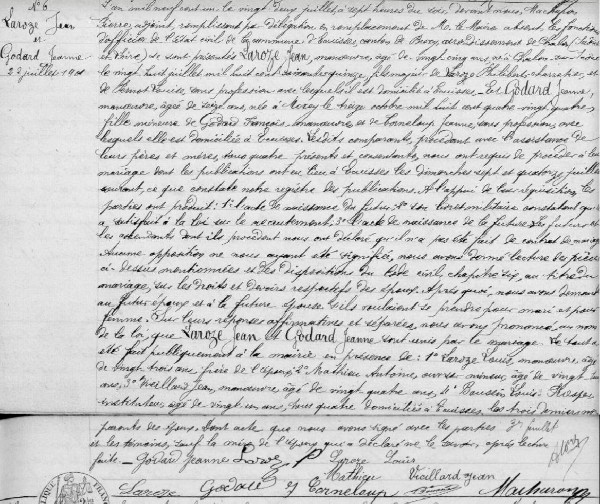 N° 6
Laroze Jean
et
Godard Jeanne
22 juillet 1901
L'an mil neuf cent un le vingt deux juillet à sept heures du soir, devant nous,
Pierre, adjoint, remplissant par délégation en remplacement de M. le Maire absent, les fonctions
d'officier de l'état civil de la commune d'Ecuisses, canton de Buxy, arrondissement de Chalon (Saône
et Loire) se sont présentés Laroze Jean, manœuvre, âgé de vingt cinq ans, né à Chalon sur Saône
le vingt huit juillet mil huit cent soixante quinze, fils majeur de Laroze Philibert charretier, et
de sans profession avec lesquels il est domicilié à Ecuisses. Et Godard Jeanne,
manœuvre, âgée de seize ans, née à le treize octobre mil huit cent quatre vingt quatre,
fille mineure de Godard François, manœuvre, et de Corneloup Jeanne, sans profession, avec
lesquels elle est domiciliée à Ecuisses. Lesdits comparants, procédant avec l'assistance de
leurs pères et mères, tous quatre présents et consentants, nous ont requis de procéder à leur
mariage dont les publications ont eu lieu à Ecuisses les dimanches sept et quatorze juillet
courant, ce que constate notre registre des publications. A l'appui de leur réquisition les
parties ont produit: 1° l'acte de naissance du futur, 2° son livret militaire constatant qu'il
a satisfait à la loi sur le recrutement, 3° l'acte de naissance de la future. Les futurs et
les ascendants dont ils procèdent nous ont déclaré qu'il n'a pas été fait de contrat de mariage.
Aucune opposition ne nous ayant été signifiée, nous avons donné lecture des pièces
ci-dessus mentionnées et des dispositions du Code civil, chapitre six, au titre du
mariage, sur les droits et devoirs respectifs des époux. Après quoi, nous avons demandé
au futur époux et à la future épouse s'ils voulaient se prendre pour mari et pour
femme. Sur leurs réponses affirmatives et séparées, nous avons prononcé, au nom
de la loi que Laroze Jean et Godard Jeanne sont unis par le mariage. Le tout a
été fait publiquement à la mairie en présence de: 1° Laroze Louis, manœuvre, âgé
de vingt trois ans, frère de l'époux, 2° Mathieu Antoine, ouvrier mineur, âgé de vingt
ans, 3° Vieillard Jean, manœuvre, âgé de vingt quatre ans, 4° Louis
instituteur, âgé de vingt un ans, tous quatre domiciliés à Ecuisses. Les trois derniers non
parents des époux. Dont acte que nous avons signé avec les parties
et les témoins, sauf la mère de l'époux qui a déclaré ne le savoir, après lecture
faite. Godard Jeanne Laroze Louis
Mathieu Vieillard Jean
Laroze Godard Corneloup